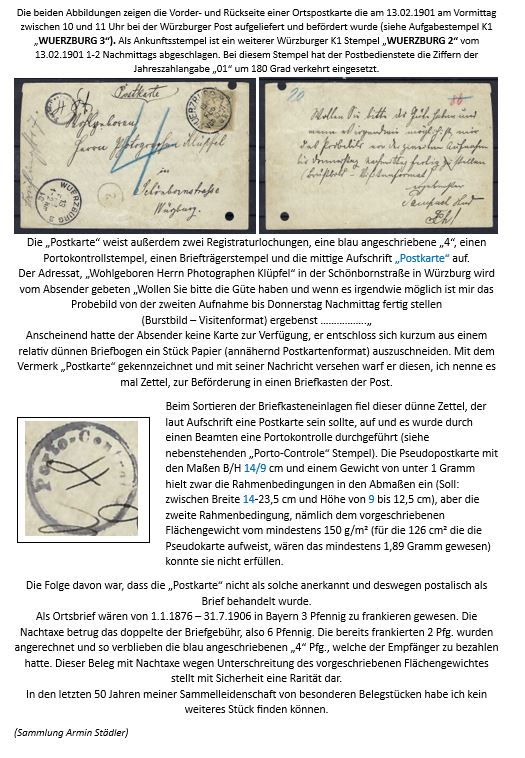 Die beiden Abbildungen zeigen die Vorder- und Rückseite einer Ortspostkarte die am 13.02.1901 am Vormittag
zwischen 10 und 11 Uhr bei der Würzburger Post aufgeliefert und befördert wurde (siehe Aufgabestempel K1
„WUERZBURG 3“). Als Ankunftsstempel ist ein weiterer Würzburger K1 Stempel „WUERZBURG 2“ vom
13.02.1901 1-2 Nachmittags abgeschlagen. Bei diesem Stempel hat der Postbedienstete die Ziffern der
Jahreszahlangabe „01“ um 180 Grad verkehrt eingesetzt.
Postkarte
Wohlgeboren
Herrn Photographen Klüpfel
in
Schönbornstrasse
Würzburg.
4
2
WUERZBURG
13
Wollen Sie bitte die Güte haben und
wenn es irgendwie möglich ist, mir
das Probebild von der zweiten Aufnahme
bis Donnerstag nachmittag fertig stellen
(Brustbild – Visitenformat)
ergebenster
Die „Postkarte“ weist außerdem zwei Registraturlochungen, eine blau angeschriebene „4“, einen
Portokontrollstempel, einen Briefträgerstempel und die mittige Aufschrift „Postkarte“ auf.
Der Adressat, „Wohlgeboren Herrn Photographen Klüpfel“ in der Schönbornstraße in Würzburg wird
vom Absender gebeten „Wollen Sie bitte die Güte haben und wenn es irgendwie möglich ist mir das
Probebild von der zweiten Aufnahme bis Donnerstag Nachmittag fertig stellen
(Burstbild – Visitenformat) ergebenst ……………..„
Anscheinend hatte der Absender keine Karte zur Verfügung, er entschloss sich kurzum aus einem
relativ dünnen Briefbogen ein Stück Papier (annähernd Postkartenformat) auszuschneiden. Mit dem
Vermerk „Postkarte“ gekennzeichnet und mit seiner Nachricht versehen warf er diesen, ich nenne es
mal Zettel, zur Beförderung in einen Briefkasten der Post.
Porto-Contro
Beim Sortieren der Briefkasteneinlagen fiel dieser dünne Zettel, der
laut Aufschrift eine Postkarte sein sollte, auf und es wurde durch
einen Beamten eine Portokontrolle durchgeführt (siehe
nebenstehenden „Porto-Controle“ Stempel). Die Pseudopostkarte mit
den Maßen B/H 14/9 cm und einem Gewicht von unter 1 Gramm
hielt zwar die Rahmenbedingungen in den Abmaßen ein (Soll:
zwischen Breite 14-23,5 cm und Höhe von 9 bis 12,5 cm), aber die
zweite Rahmenbedingung, nämlich dem vorgeschriebenen
Flächengewicht vom mindestens 150 g/m² (für die 126 cm² die die
Pseudokarte aufweist, wären das mindestens 1,89 Gramm gewesen)
konnte sie nicht erfüllen.
Die Folge davon war, dass die „Postkarte“ nicht als solche anerkannt und deswegen postalisch als
Brief behandelt wurde.
Als Ortsbrief wären von 1.1.1876 – 31.7.1906 in Bayern 3 Pfennig zu frankieren gewesen. Die
Nachtaxe betrug das doppelte der Briefgebühr, also 6 Pfennig. Die bereits frankierten 2 Pfg. wurden
angerechnet und so verblieben die blau angeschriebenen „4“ Pfg., welche der Empfänger zu bezahlen
hatte. Dieser Beleg mit Nachtaxe wegen Unterschreitung des vorgeschriebenen Flächengewichtes
stellt mit Sicherheit eine Rarität dar.
In den letzten 50 Jahren meiner Sammelleidenschaft von besonderen Belegstücken habe ich kein
weiteres Stück finden können.
(Sammlung Armin Städler)